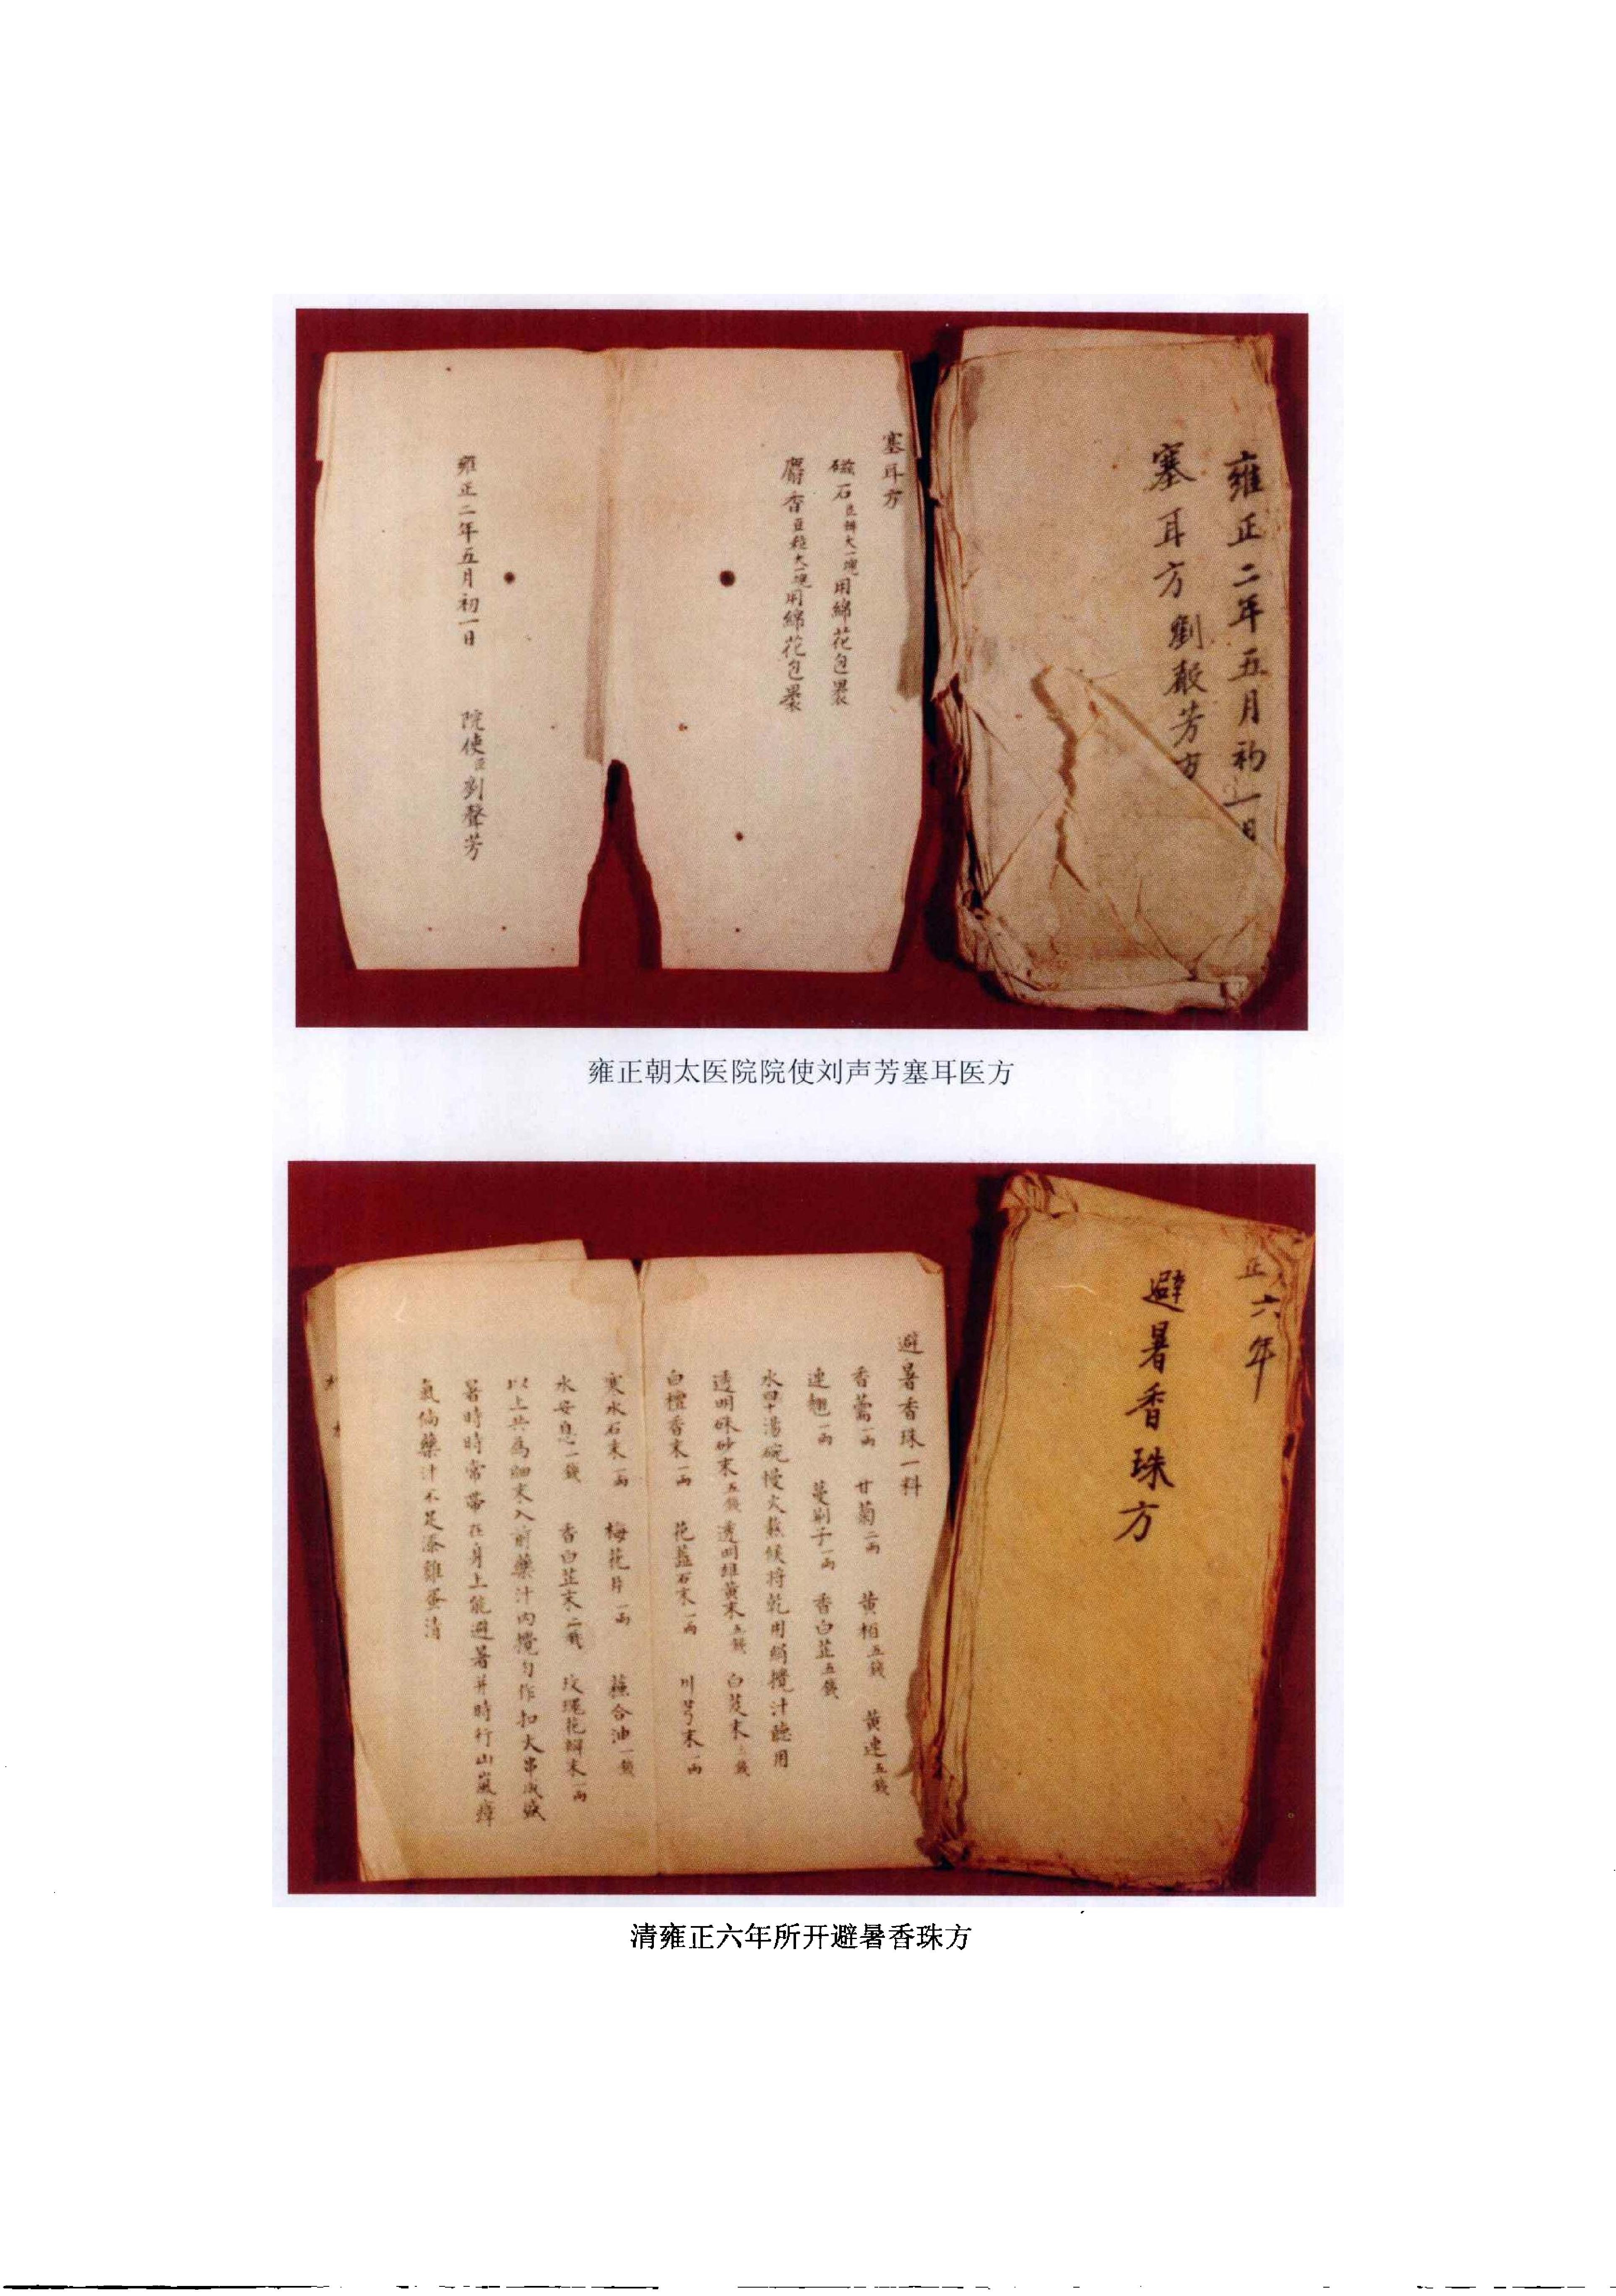 雍正二年五月初一日
塞耳方 劉聲芳方
塞耳方
磁石豆瓣大一塊用綿花包裹
麝香豆粒大一塊用綿花包裹
雍正二年五月初一日 院使臣劉聲芳
雍正朝太医院院使刘声芳塞耳医方
正六年
避暑香珠方
避暑香珠一料
香薷一两 甘菊二两 黄栢五錢 黄連五錢
連翹一两 蔓荆子一两 香白芷五錢
水四湯碗慢火熬候将乾用絹攪汁聽用
透明硃砂末五錢 透明雄黄末五錢 白芨末錢
白檀香末一两 花蕊石末一两 川芎末一两
寒水石末一两 梅花片一两 蘇合油一錢
水安息一錢 香白芷末二錢 玫瑰花瓣末一两
以上共為細末入前藥汁内攪匀作扣大串成盛
暑時時常帶在身上能避暑并時行山嵐瘴
氣倘藥汁不足添雞蛋清
清雍正六年所开避暑香珠方